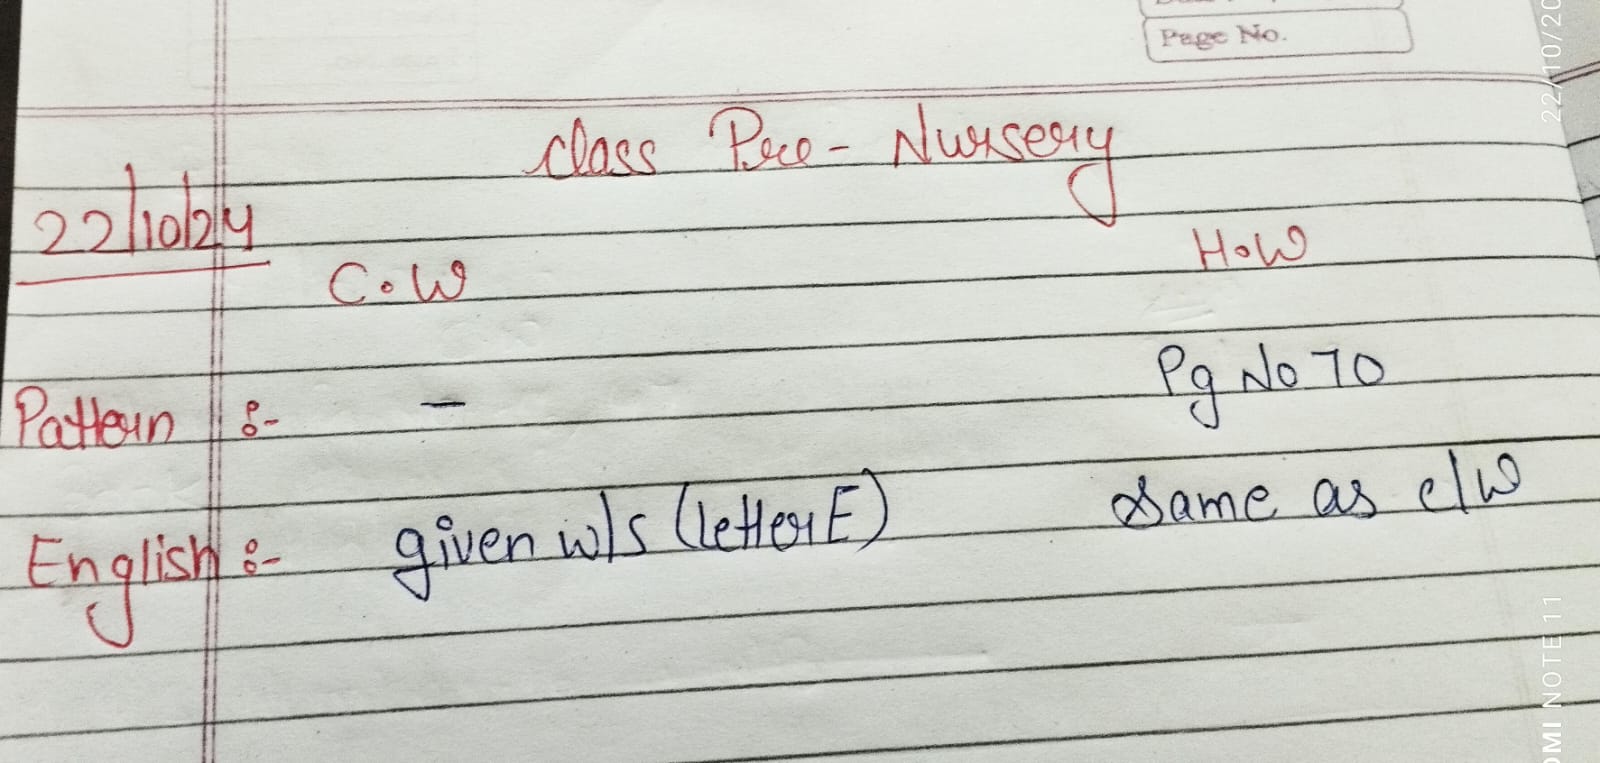 Page No.
Class Pre-Nursery
22/10/24
C.W H.W
Pattern :- — Pg No 70
English :- given w/s (letter E) Same as c/w
22/10/20
OMI NOTE 11